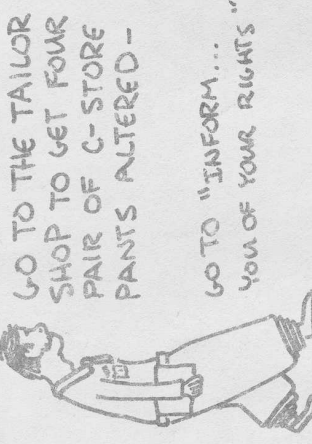 GO TO THE TAILOR
SHOP TO GET FOUR
PAIR OF C-STORE
PANTS ALTERED-
GO TO "INFORM...
YOU OF YOUR RIGHTS"